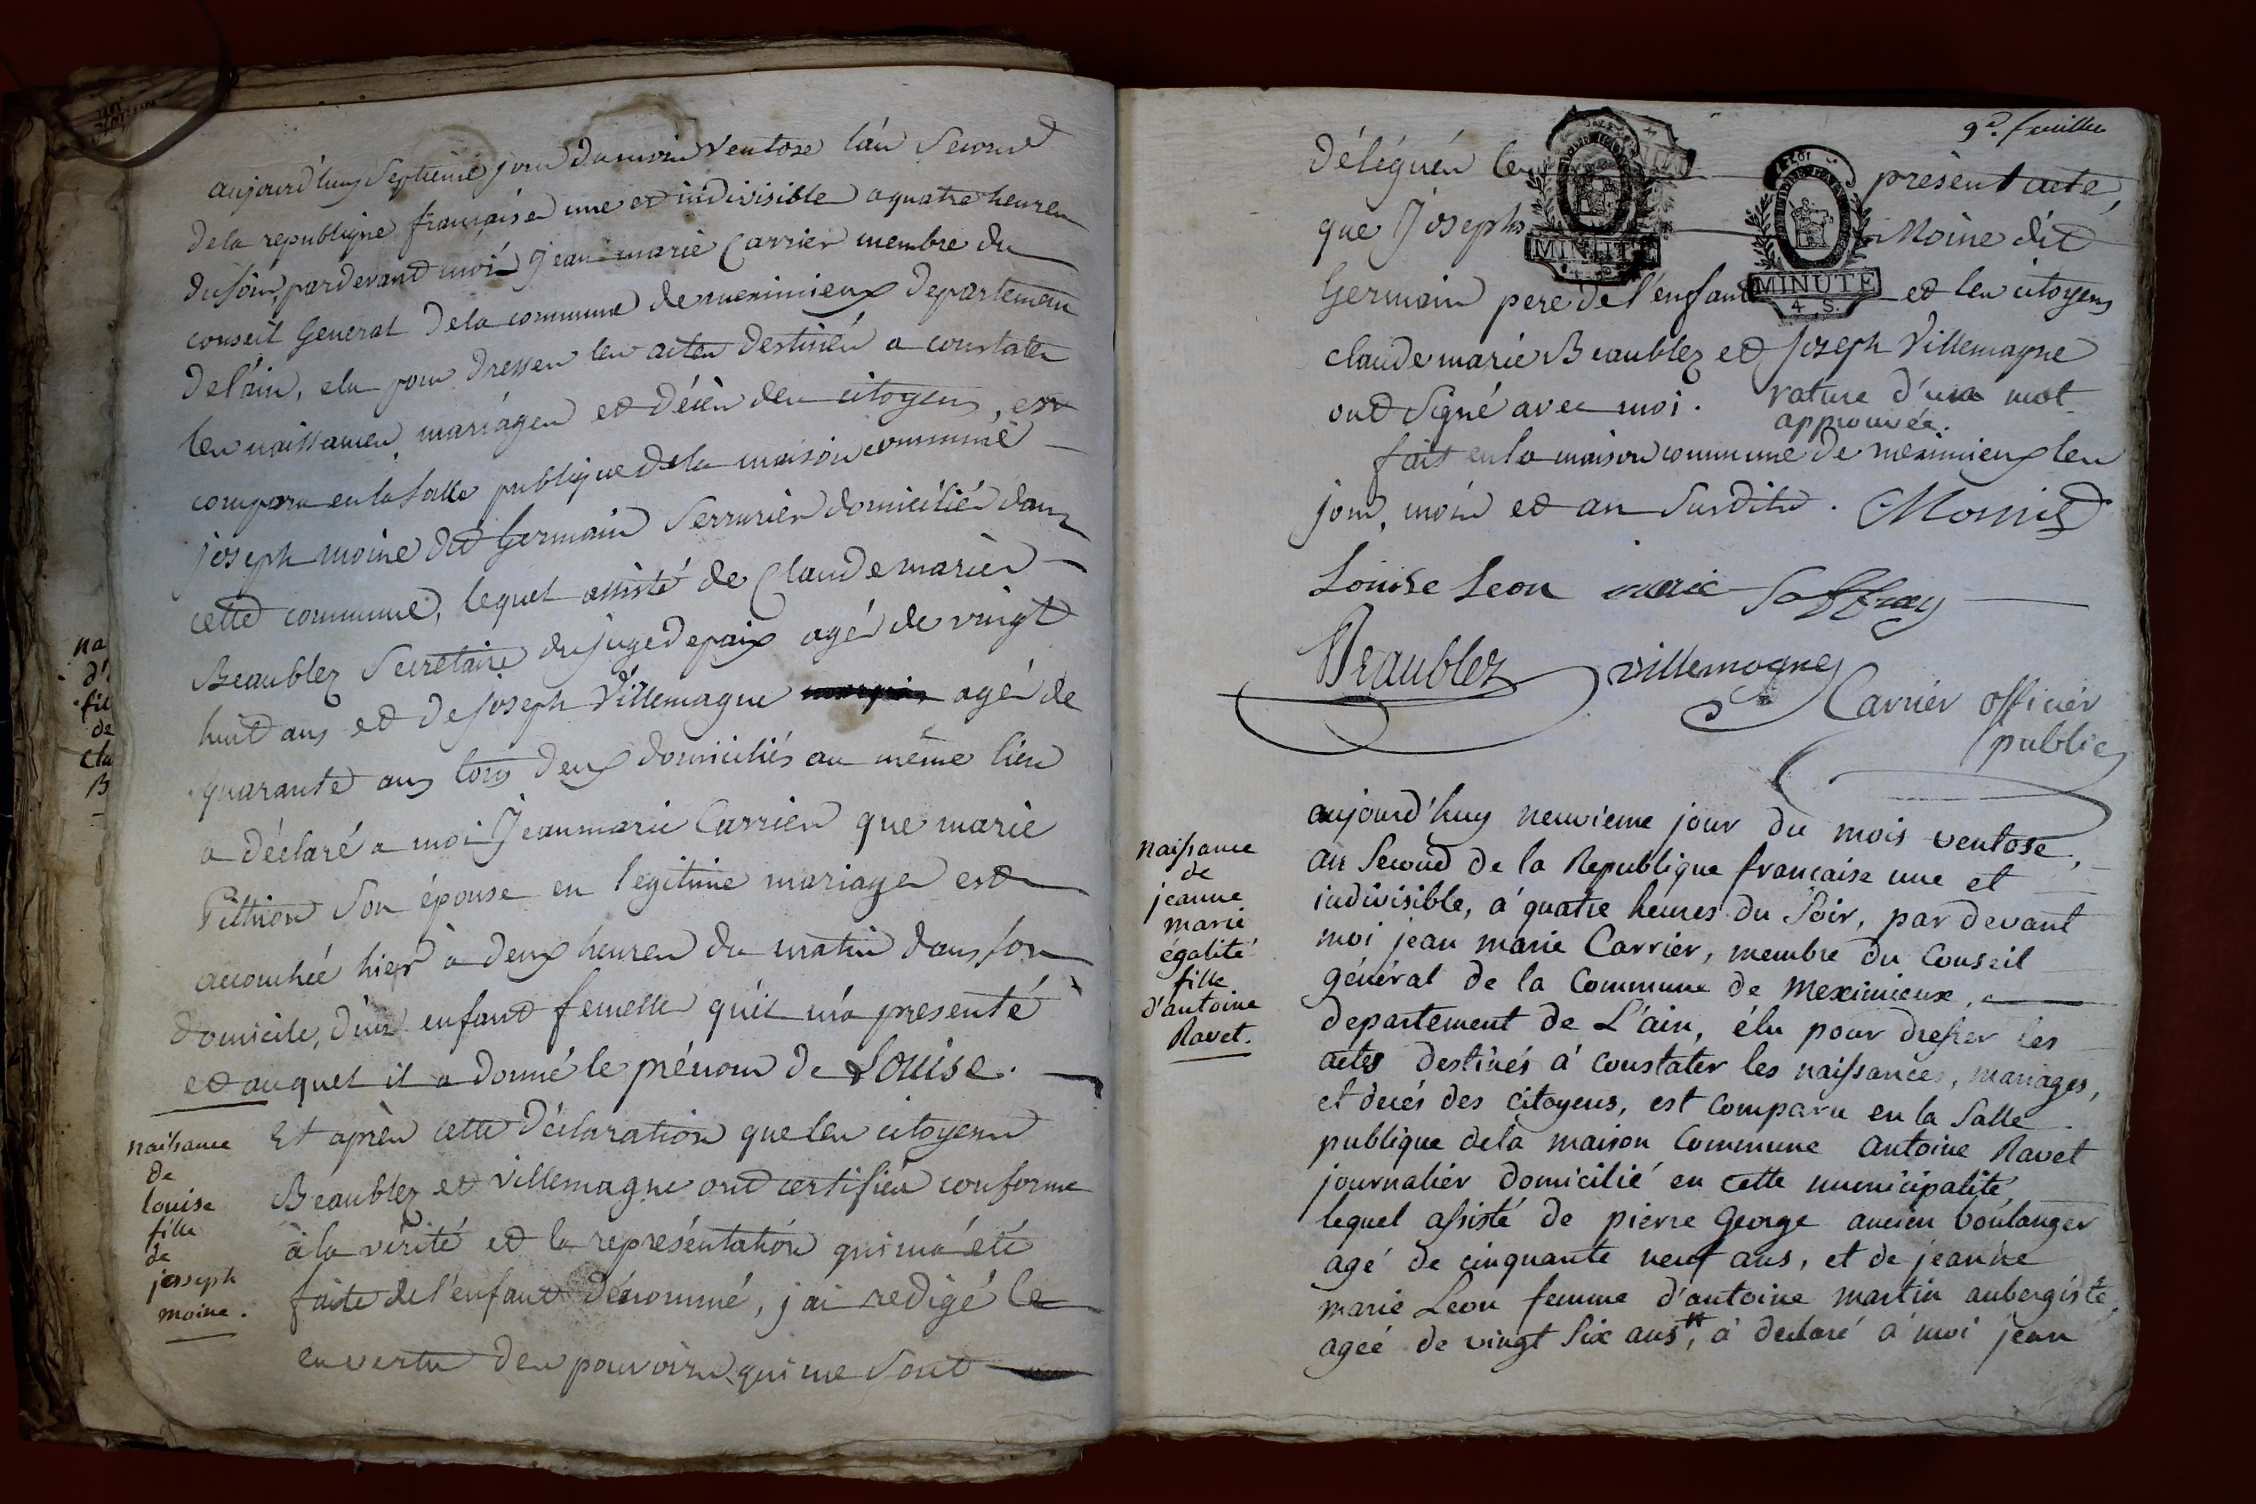 aujourd'huy Septieme jour du mois Ventose l'an Second
de la republique française une et indivisible a quatre heures
du soir, pardevant moi Jean marie Carrier membre du
conseil General de la commune de meximieux departement
de l'ain, elu pour dresser les actes destinés a constater
les naissances, mariages et décès des citoyens, est
comparu en la Salle publique de la maison commune
joseph moine dit Germain Serrurier domicilié dans
cette commune, lequel assisté de Claude marie
Beaublez Secretaire du juge de paix agé de vingt
huit ans et de joseph Villemagne agé de
quarante ans tous deux domiciliés au même lieu
a déclaré a moi Jean marie Carrier que marie
Pithion Son épouse en legitime mariage est
accouchée hier à deux heures du matin dans son
domicile, d'un enfant femelle qu'il m'a presenté
et auquel il a donné le prénom de Louise.
naissance
de
louise
fille
de
joseph
moine.
Et après cette déclaration que les citoyens
Beaublez et Villemagne ont certifiée conforme
à la vérité et la représentation qui m'a été
faite de l'enfant dénommé, j'ai redigé le
en vertu des pouvoirs qui me Sont
na
d'
fil
de
Cla
B
9e. feuillet
Délégués le présent acte,
que Joseph Moine dit
Germain pere de l'enfant et les citoyens
claude marie Beaublez et joseph Villemagne
ont Signé avec moi. rature d'un mot
approuvée.
fait en la maison commune de meximieux les
jour, mois et an Susdits. Moine
Louise Leon marie Saffray
Beaublez villemagne
Carrier officier
public
MINUTE
MINUTE
4 S.
naissance
de
jeanne
marie
égalité
fille
d'antoine
Ravet.
aujourd'huy neuvieme jour du mois ventose,
an Second de la Republique francaise une et
indivisible, à quatre heures du Soir, par devant
moi jean marie Carrier, membre du Conseil
général de la Commune de Meximieux,
departement de L'ain, élu pour dresser les
actes destinés à constater les naissances, mariages,
et decés des citoyens, est comparu en la Salle
publique dela maison Commune antoine Ravet
journalier domicilié en cette municipalité,
lequel assisté de pierre George ancien boulanger
agé de cinquante neuf ans, et de jeanne
marie Leon femme d'antoine martin aubergiste,
ageé de vingt Six ans, à declaré à moi jean